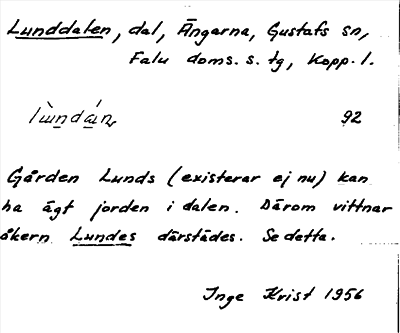 Lunddalen, dal, Ängarna, Gustafs sn,
Falu doms. s. tg, Kopp. l.
lùndán 92
Gården Lunds (existerar ej nu) kan
ha ägt jorden i dalen. Därom vittnar
åkern Lundes därstädes. Se detta.
Inge Krist 1956